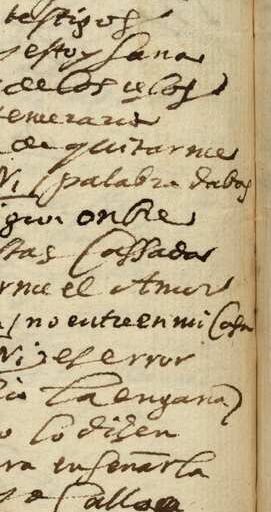 testigos
y estoy sana
de los çelos
temerario
de quitarme
Ni palabra dabas
ningun onbre
estas Cassada
rme el Amor
no entre en mi Casa
Ni es error
la engaña
lo diçen
ra enseñarla
Calle